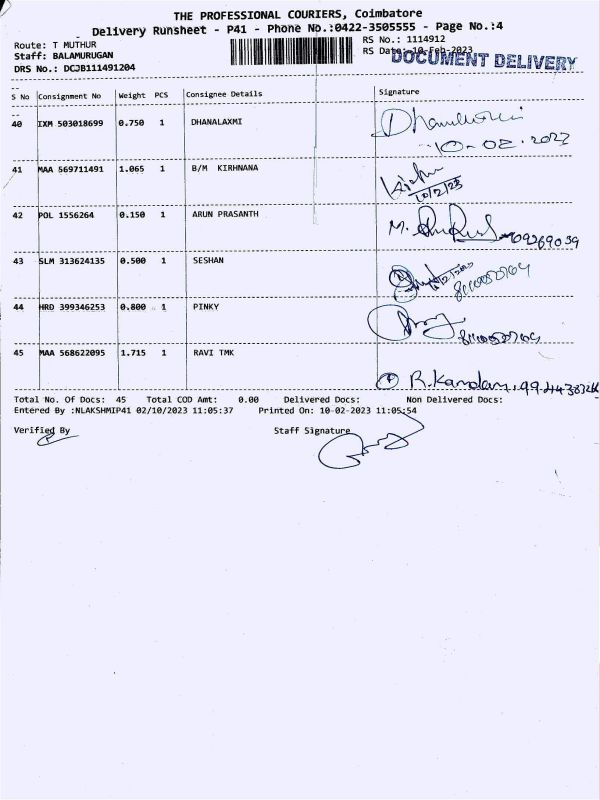 THE PROFESSIONAL COURIERS, Coimbatore
Delivery Runsheet - P41 - Phone No.:0422-3505555 - Page No.:4
Route: T MUTHUR
RS No.: 1114912
Staff: BALAMURUGAN
RS Date: 10-Feb-2023
DOCUMENT DELIVERY
DRS No.: DCJB111491204
S No Consignment No Weight PCS Consignee Details Signature
40 IXM 503018699 0.750 1 DHANALAXMI
10-02-2023
41 MAA 569711491 1.065 1 B/M KIRHNANA
10/2/23
42 POL 1556264 0.150 1 ARUN PRASANTH
43 SLM 313624135 0.500 1 SESHAN
44 HRD 399346253 0.800 1 PINKY
45 MAA 568622095 1.715 1 RAVI TMK
R.Kandam
Total No. Of Docs: 45 Total COD Amt: 0.00 Delivered Docs: Non Delivered Docs:
Entered By :NLAKSHMIP41 02/10/2023 11:05:37 Printed On: 10-02-2023 11:05:54
Verified By Staff Signature